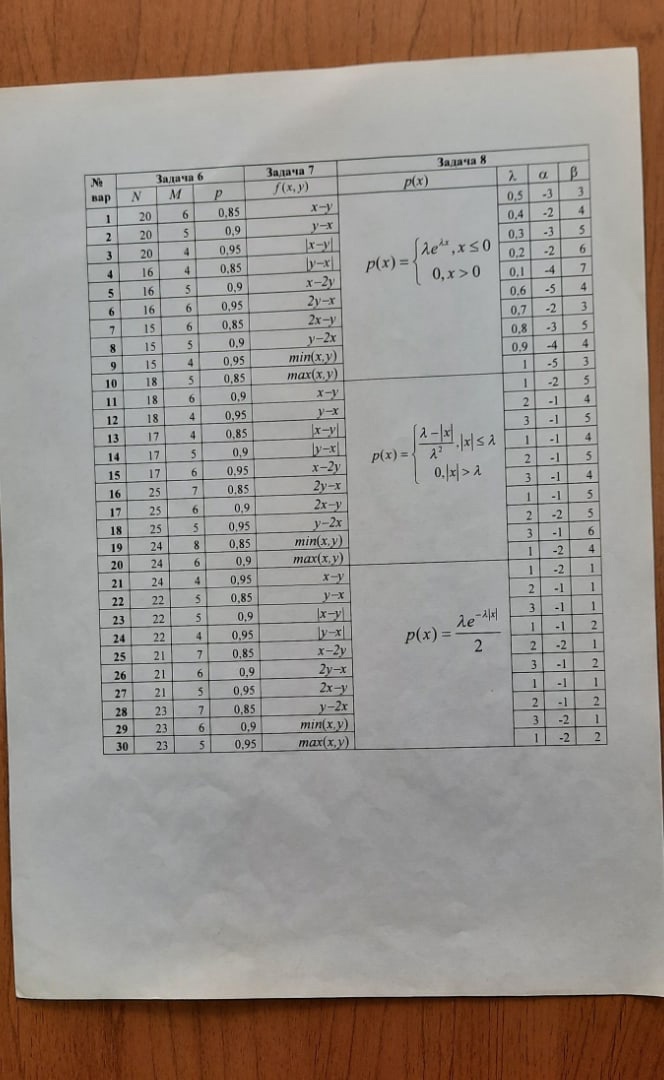 № вар Задача 6 Задача 7 Задача 8
N M p f(x,y) p(x) λ α β
1 20 6 0,85 x−y 0,5 -3 3
2 20 5 0,9 y−x 0,4 -2 4
3 20 4 0,95 |x−y| 0,3 -3 5
4 16 4 0,85 |y−x| p(x) = { λe^{λx}, x ≤ 0 0,2 -2 6
5 16 5 0,9 x−2y 0, x > 0 0,1 -4 7
6 16 6 0,95 2y−x 0,6 -5 4
7 15 6 0,85 2x−y 0,7 -2 3
8 15 5 0,9 y−2x 0,8 -3 5
9 15 4 0,95 min(x,y) 0,9 -4 4
10 18 5 0,85 max(x,y) 1 -5 3
11 18 6 0,9 x−y 1 -2 5
12 18 4 0,95 y−x 2 -1 4
13 17 4 0,85 |x−y| 3 -1 5
14 17 5 0,9 |y−x| p(x) = { (λ−|x|)/λ², |x| ≤ λ 1 -1 4
15 17 6 0,95 x−2y 0, |x| > λ 2 -1 5
16 25 7 0,85 2y−x 3 -1 4
17 25 6 0,9 2x−y 1 -1 5
18 25 5 0,95 y−2x 2 -2 5
19 24 8 0,85 min(x,y) 3 -1 6
20 24 6 0,9 max(x,y) 1 -2 4
21 24 4 0,95 x−y 1 -2 1
22 22 5 0,85 y−x 2 -1 1
23 22 5 0,9 |x−y| 3 -1 1
24 22 4 0,95 |y−x| p(x) = λe^{−λ|x|}/2 1 -1 2
25 21 7 0,85 x−2y 2 -2 1
26 21 6 0,9 2y−x 3 -1 2
27 21 5 0,95 2x−y 1 -1 1
28 23 7 0,85 y−2x 2 -1 2
29 23 6 0,9 min(x,y) 3 -2 1
30 23 5 0,95 max(x,y) 1 -2 2